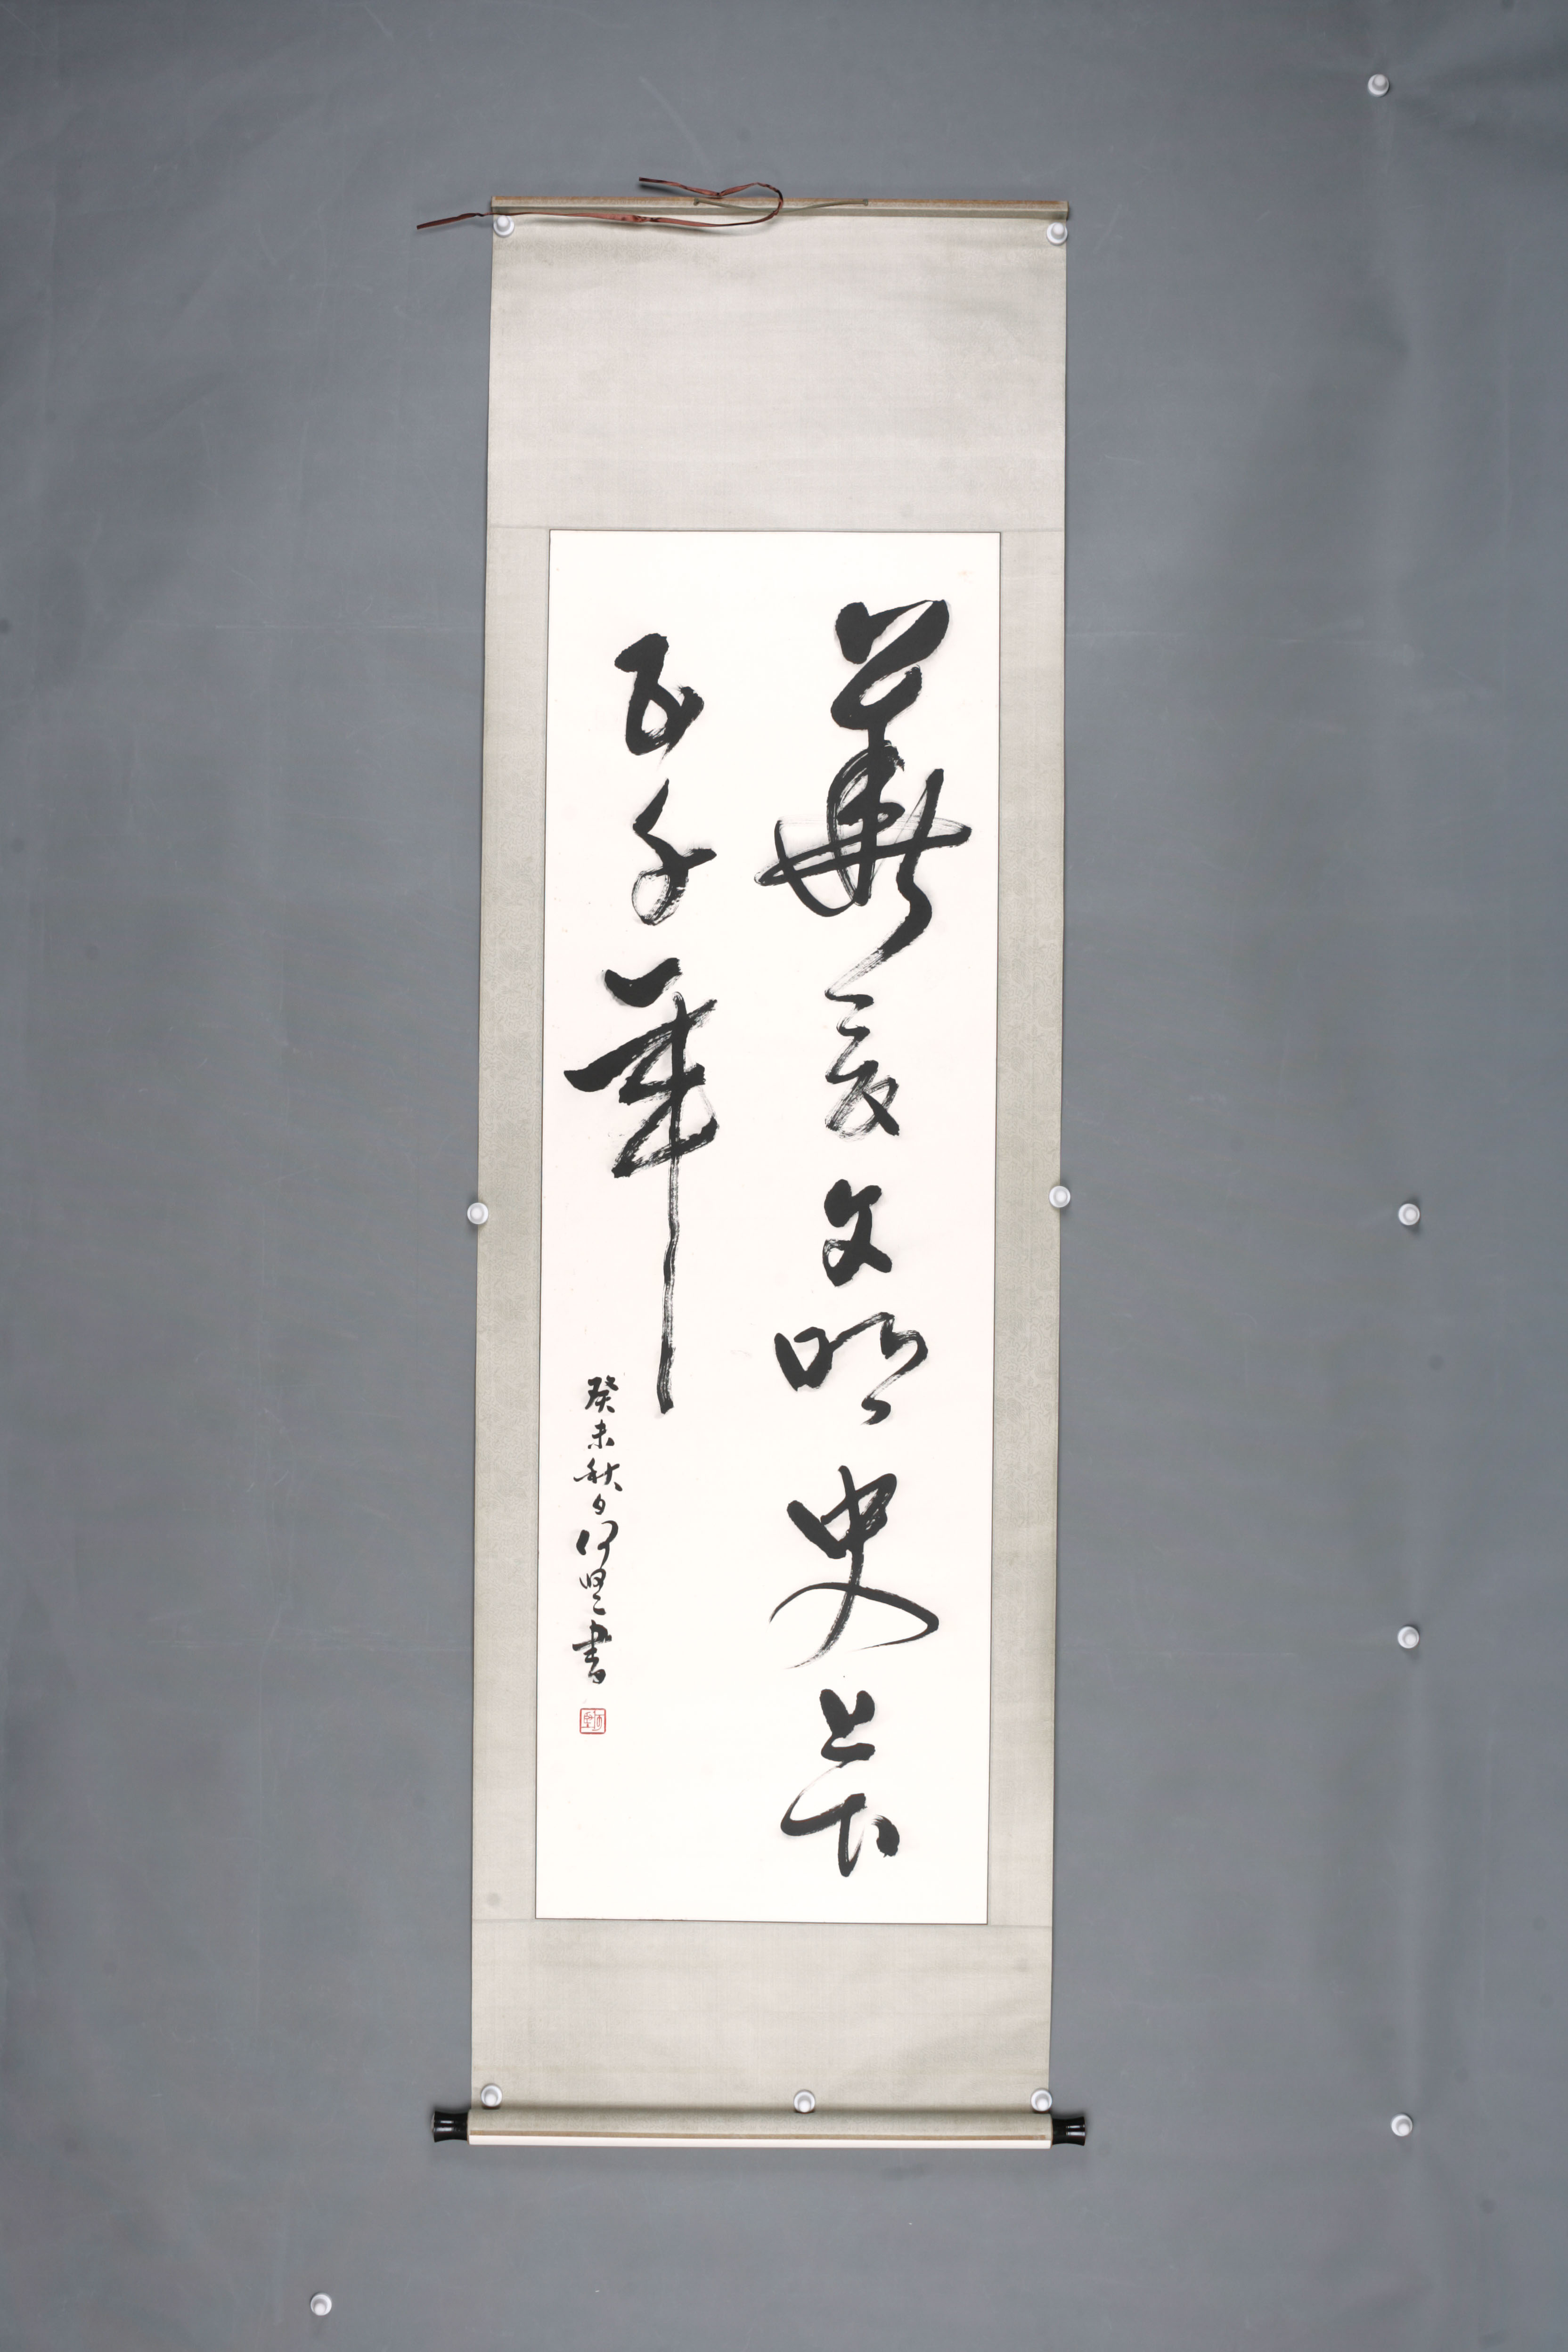 華夏文明史上下
五千年
癸未秋月何[…]書